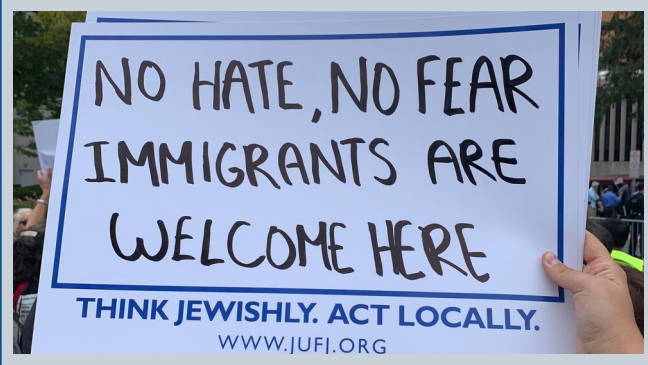 NO HATE, NO FEAR
IMMIGRANTS ARE
WELCOME HERE
THINK JEWISHLY. ACT LOCALLY.
WWW.JUFJ.ORG